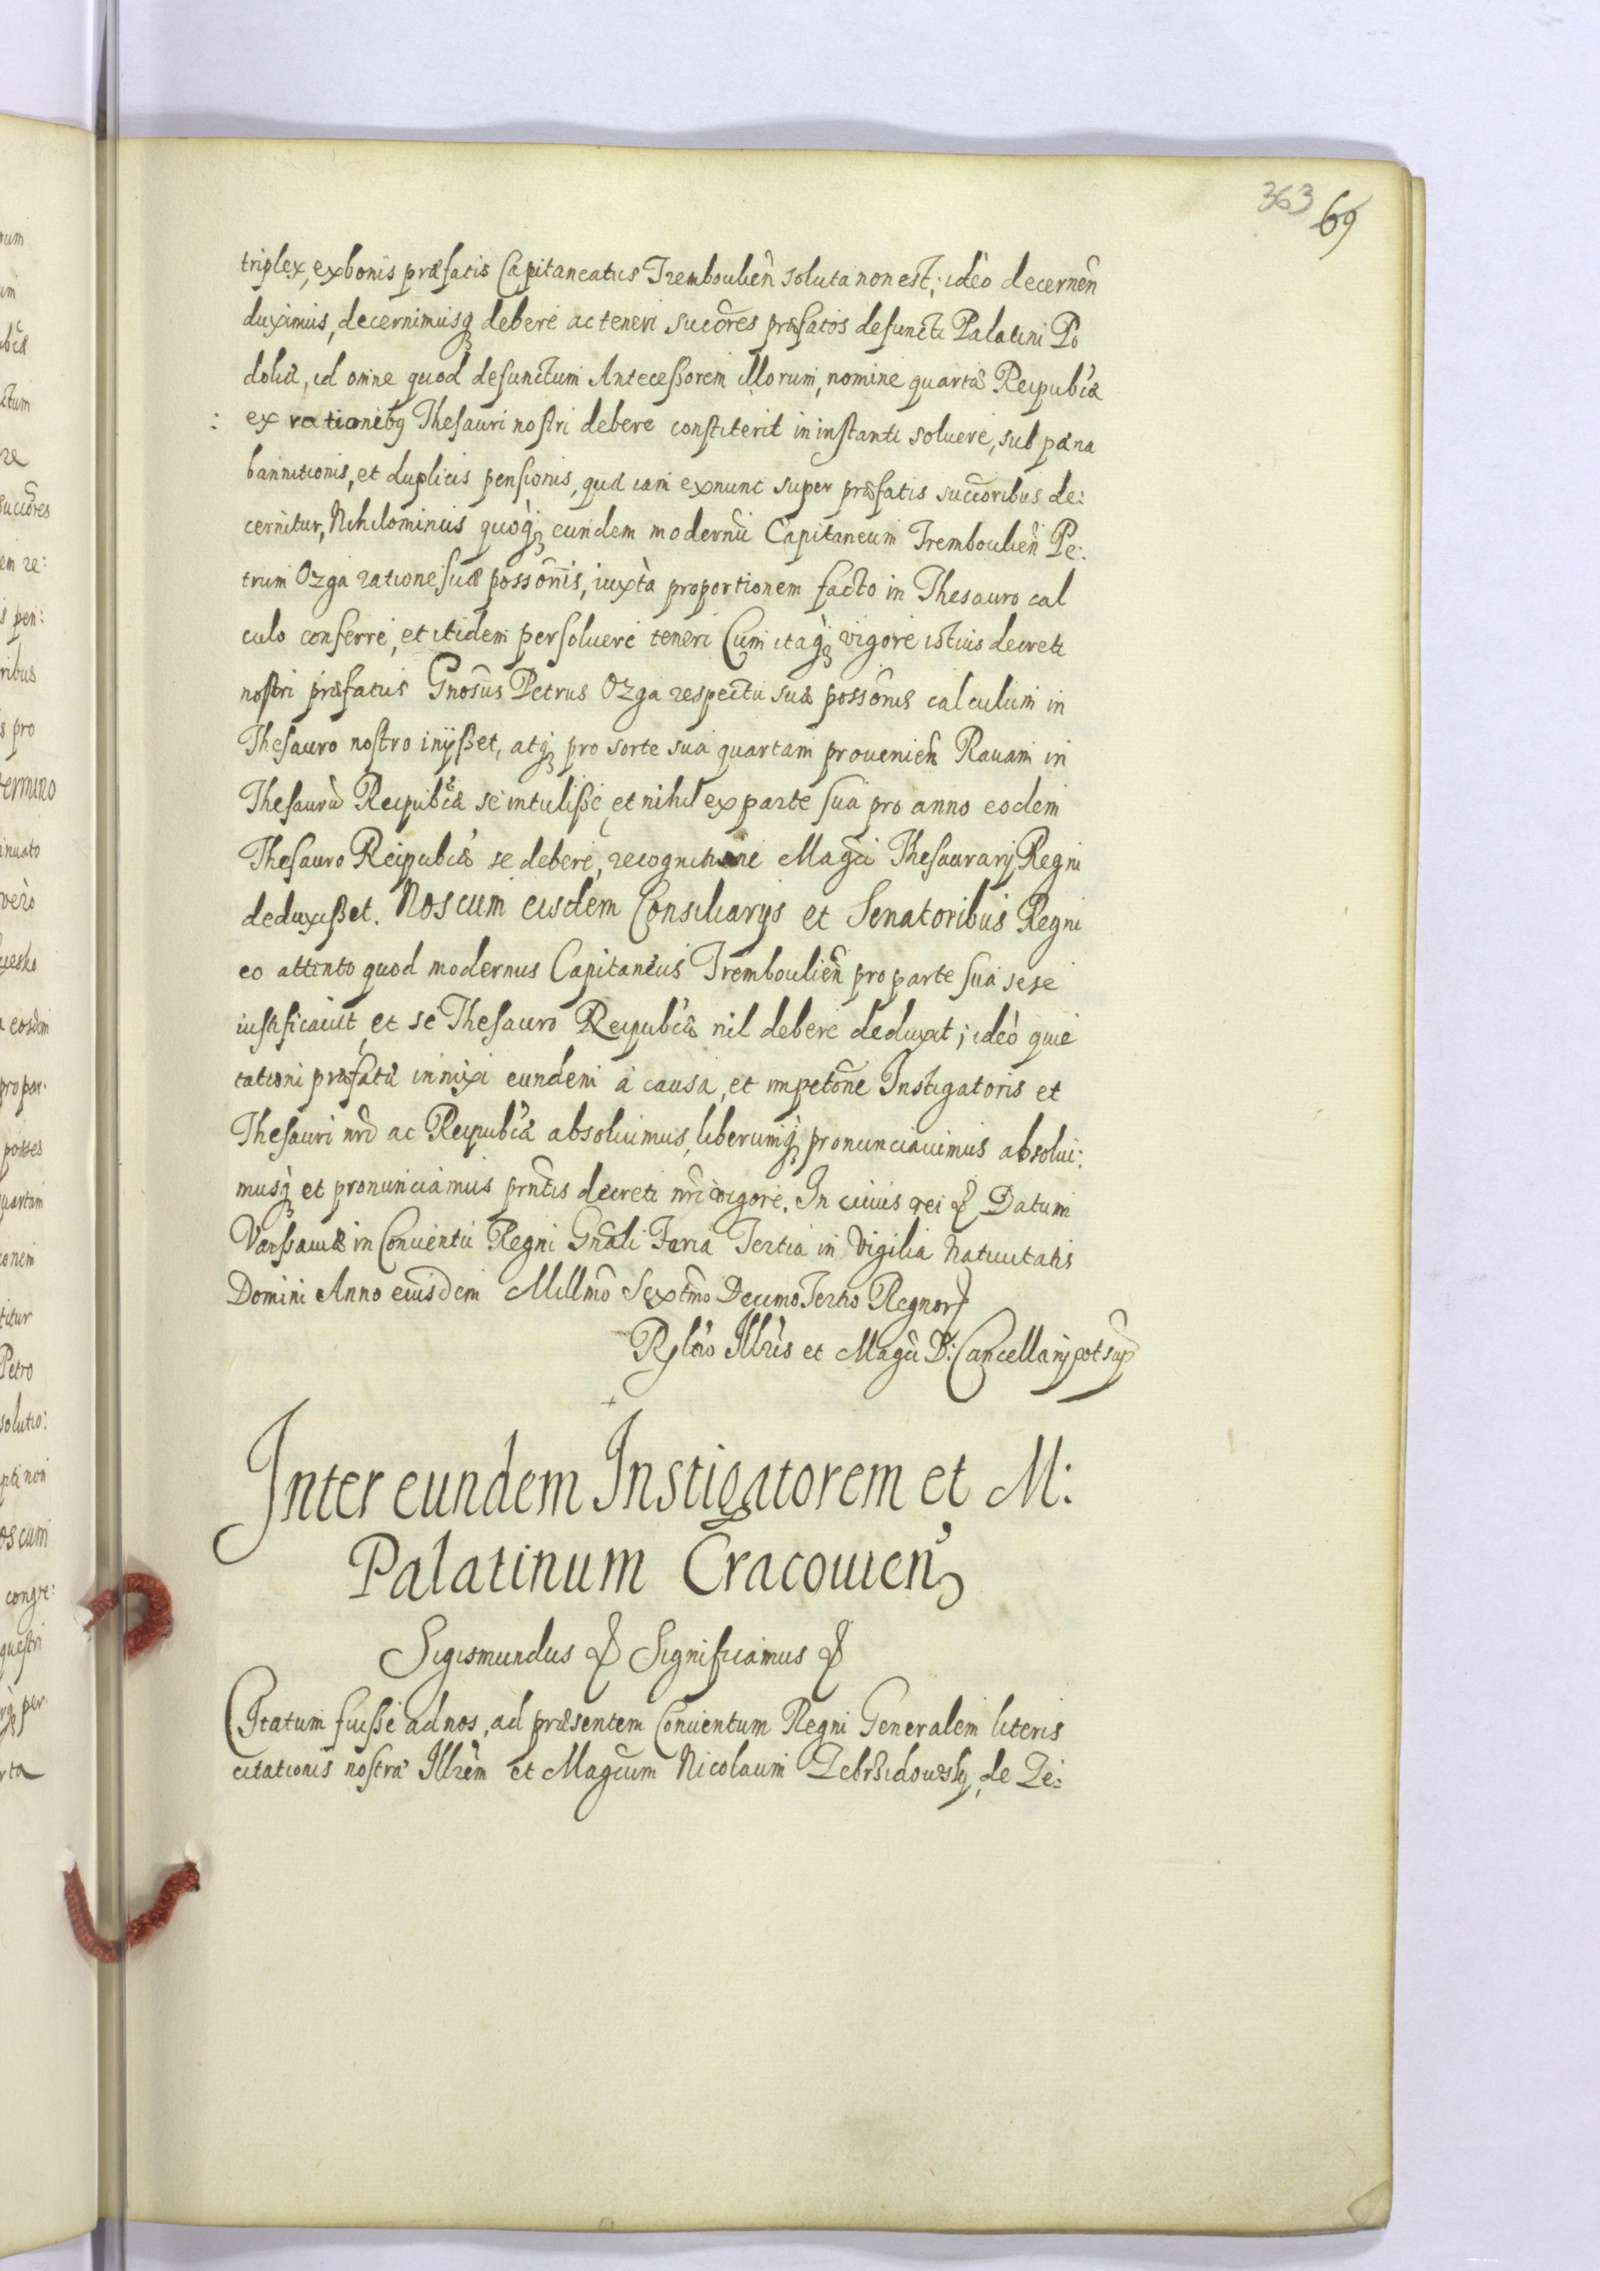 363 69
triplex, ex bonis præfatis Capitaneatus Trembouliẽn soluta non est, ideò decernẽn
duximus, decernimusq₃ debere ac teneri succõres præfatos defuncti Palatini Po
doliæ, id omne quod defunctum Antecessorem illorum, nomine quartæ Reipubĉæ
ex rationibq Thesauri nostri debere constiterit in instanti soluere, sub pæna
bannitionis, et duplicis pensionis, quæ iam exnunc super præfatis succõribus de:
cernitur, Nihilominus quoq₃ eundem modernũ Capitaneum Trembouliẽn Pe:
trum Ozga ratione suæ possõnis, iuxtà proportionem facto in Thesauro cal
culo conferre, et itidem persoluere teneri Cum itaq₃ vigore istius decreti
nostri præfatus Gnosũs Petrus Ozga respectu suæ possõnis calculum in
Thesauro nostro inijsset, atq₃ pro sorte sua quartam prouenieñ Rauam in
Thesaurũ Reipubĉæ se intulisse, et nihil ex parte sua pro anno eodem
Thesauro Reipubĉæ se debere, recognitione Magĉi Thesaurarij Regni
deduxisset. Nos cum eisdem Consiliarijs et Senatoribus Regni
eo attento quod modernus Capitaneus Trembouliẽn pro parte sua sese
iustificauit, et se Thesauro Reipubĉæ nil debere deduxit; ideò quie
tationi præfatæ innixi eundem à causa, et impetõne Instigatoris et
Thesauri nrĩ ac Reipubĉæ absoluimus, liberumq₃ pronunciauimus absolui:
musq₃ et pronunciamus prñtis decreti nrĩ vigore. In cuius rei & Datum
Varssauiæ in Conuentu Regni Gñali Feria Tertia in Vigilia Natiuitatis
Domini Anno eiusdem Millmõ Sextmõ Decimo Tertio Regnor&
Rlãio Illrĩs et Magĉi D: Cancellarij pot supr
Inter eundem Instigatorem et M:
Palatinum Cracouien₃
Sigismundus & Significamus &
Citatum fuisse ad nos, ad præsentem Conuentum Regni Generalem literis
citationis nostræ Illrẽm et Magĉum Nicolaum Zebrzidowsky, de Ze: